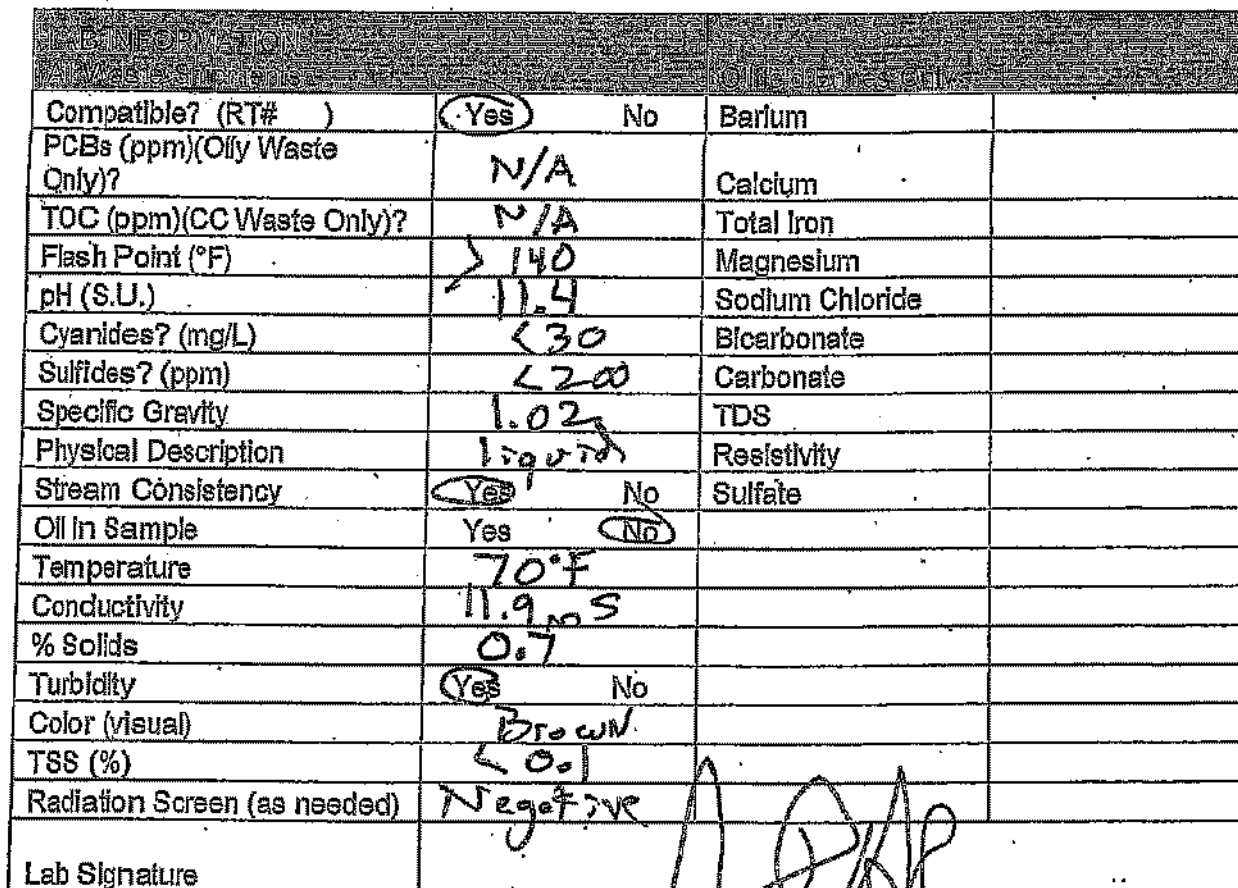 LAB INFORMATION
All Waste Shipments
Compatible? (RT# ) Yes No Barium
PCBs (ppm)(Oily Waste
Only)? N/A Calcium
TOC (ppm)(CC Waste Only)? N/A Total Iron
Flash Point (°F) > 140 Magnesium
pH (S.U.) 11.4 Sodium Chloride
Cyanides? (mg/L) <30 Bicarbonate
Sulfides? (ppm) <200 Carbonate
Specific Gravity 1.02 TDS
Physical Description liquid Resistivity
Stream Consistency Yes No Sulfate
Oil in Sample Yes No
Temperature 70°F
Conductivity 11.9 mS
% Solids 0.7
Turbidity Yes No
Color (visual) Brown
TSS (%) < 0.1
Radiation Screen (as needed) Negative
Lab Signature